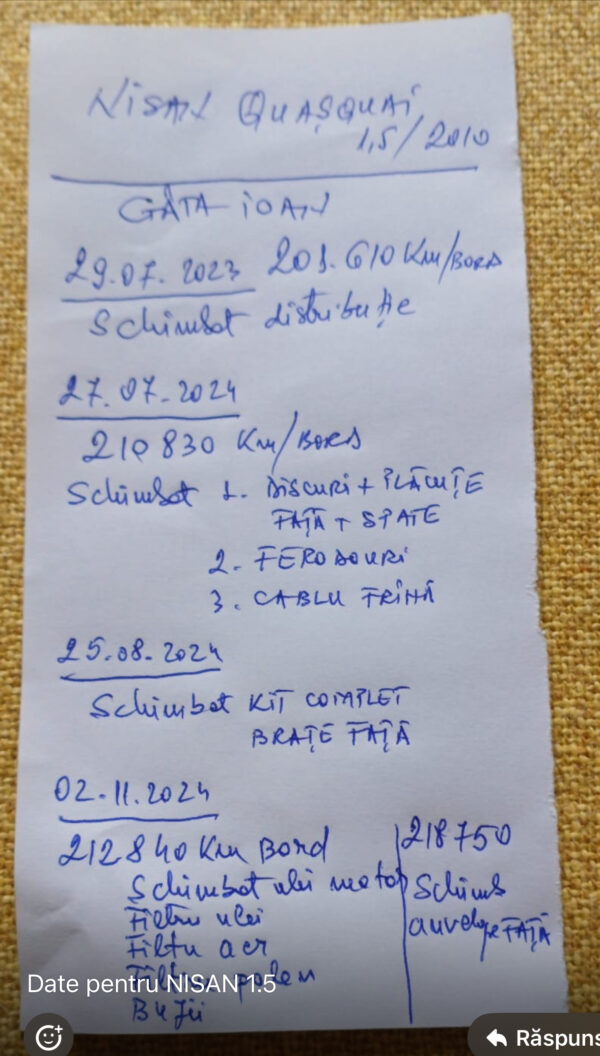 NISAN QUAȘQUAI
1,5/2010
GÂTA IOAN
29.07.2023 201.610 Km/BORD
Schimbat distribuție
27.07.2024
210830 Km/BORD
Schimbat 1. DISCURI + PLĂCUȚE
FAȚĂ + SPATE
2. FERODOURI
3. CABLU FRÎNĂ
25.08.2024
Schimbat KIT COMPLET
BRAȚE FAȚĂ
02.11.2024
212840 Km Bord
Schimbat ulei motor
Filtru ulei
Filtu aer
Filtru polen
Bujii
218750
Schimb
anvelope FAȚĂ
Date pentru NISAN 1.5
Răspuns